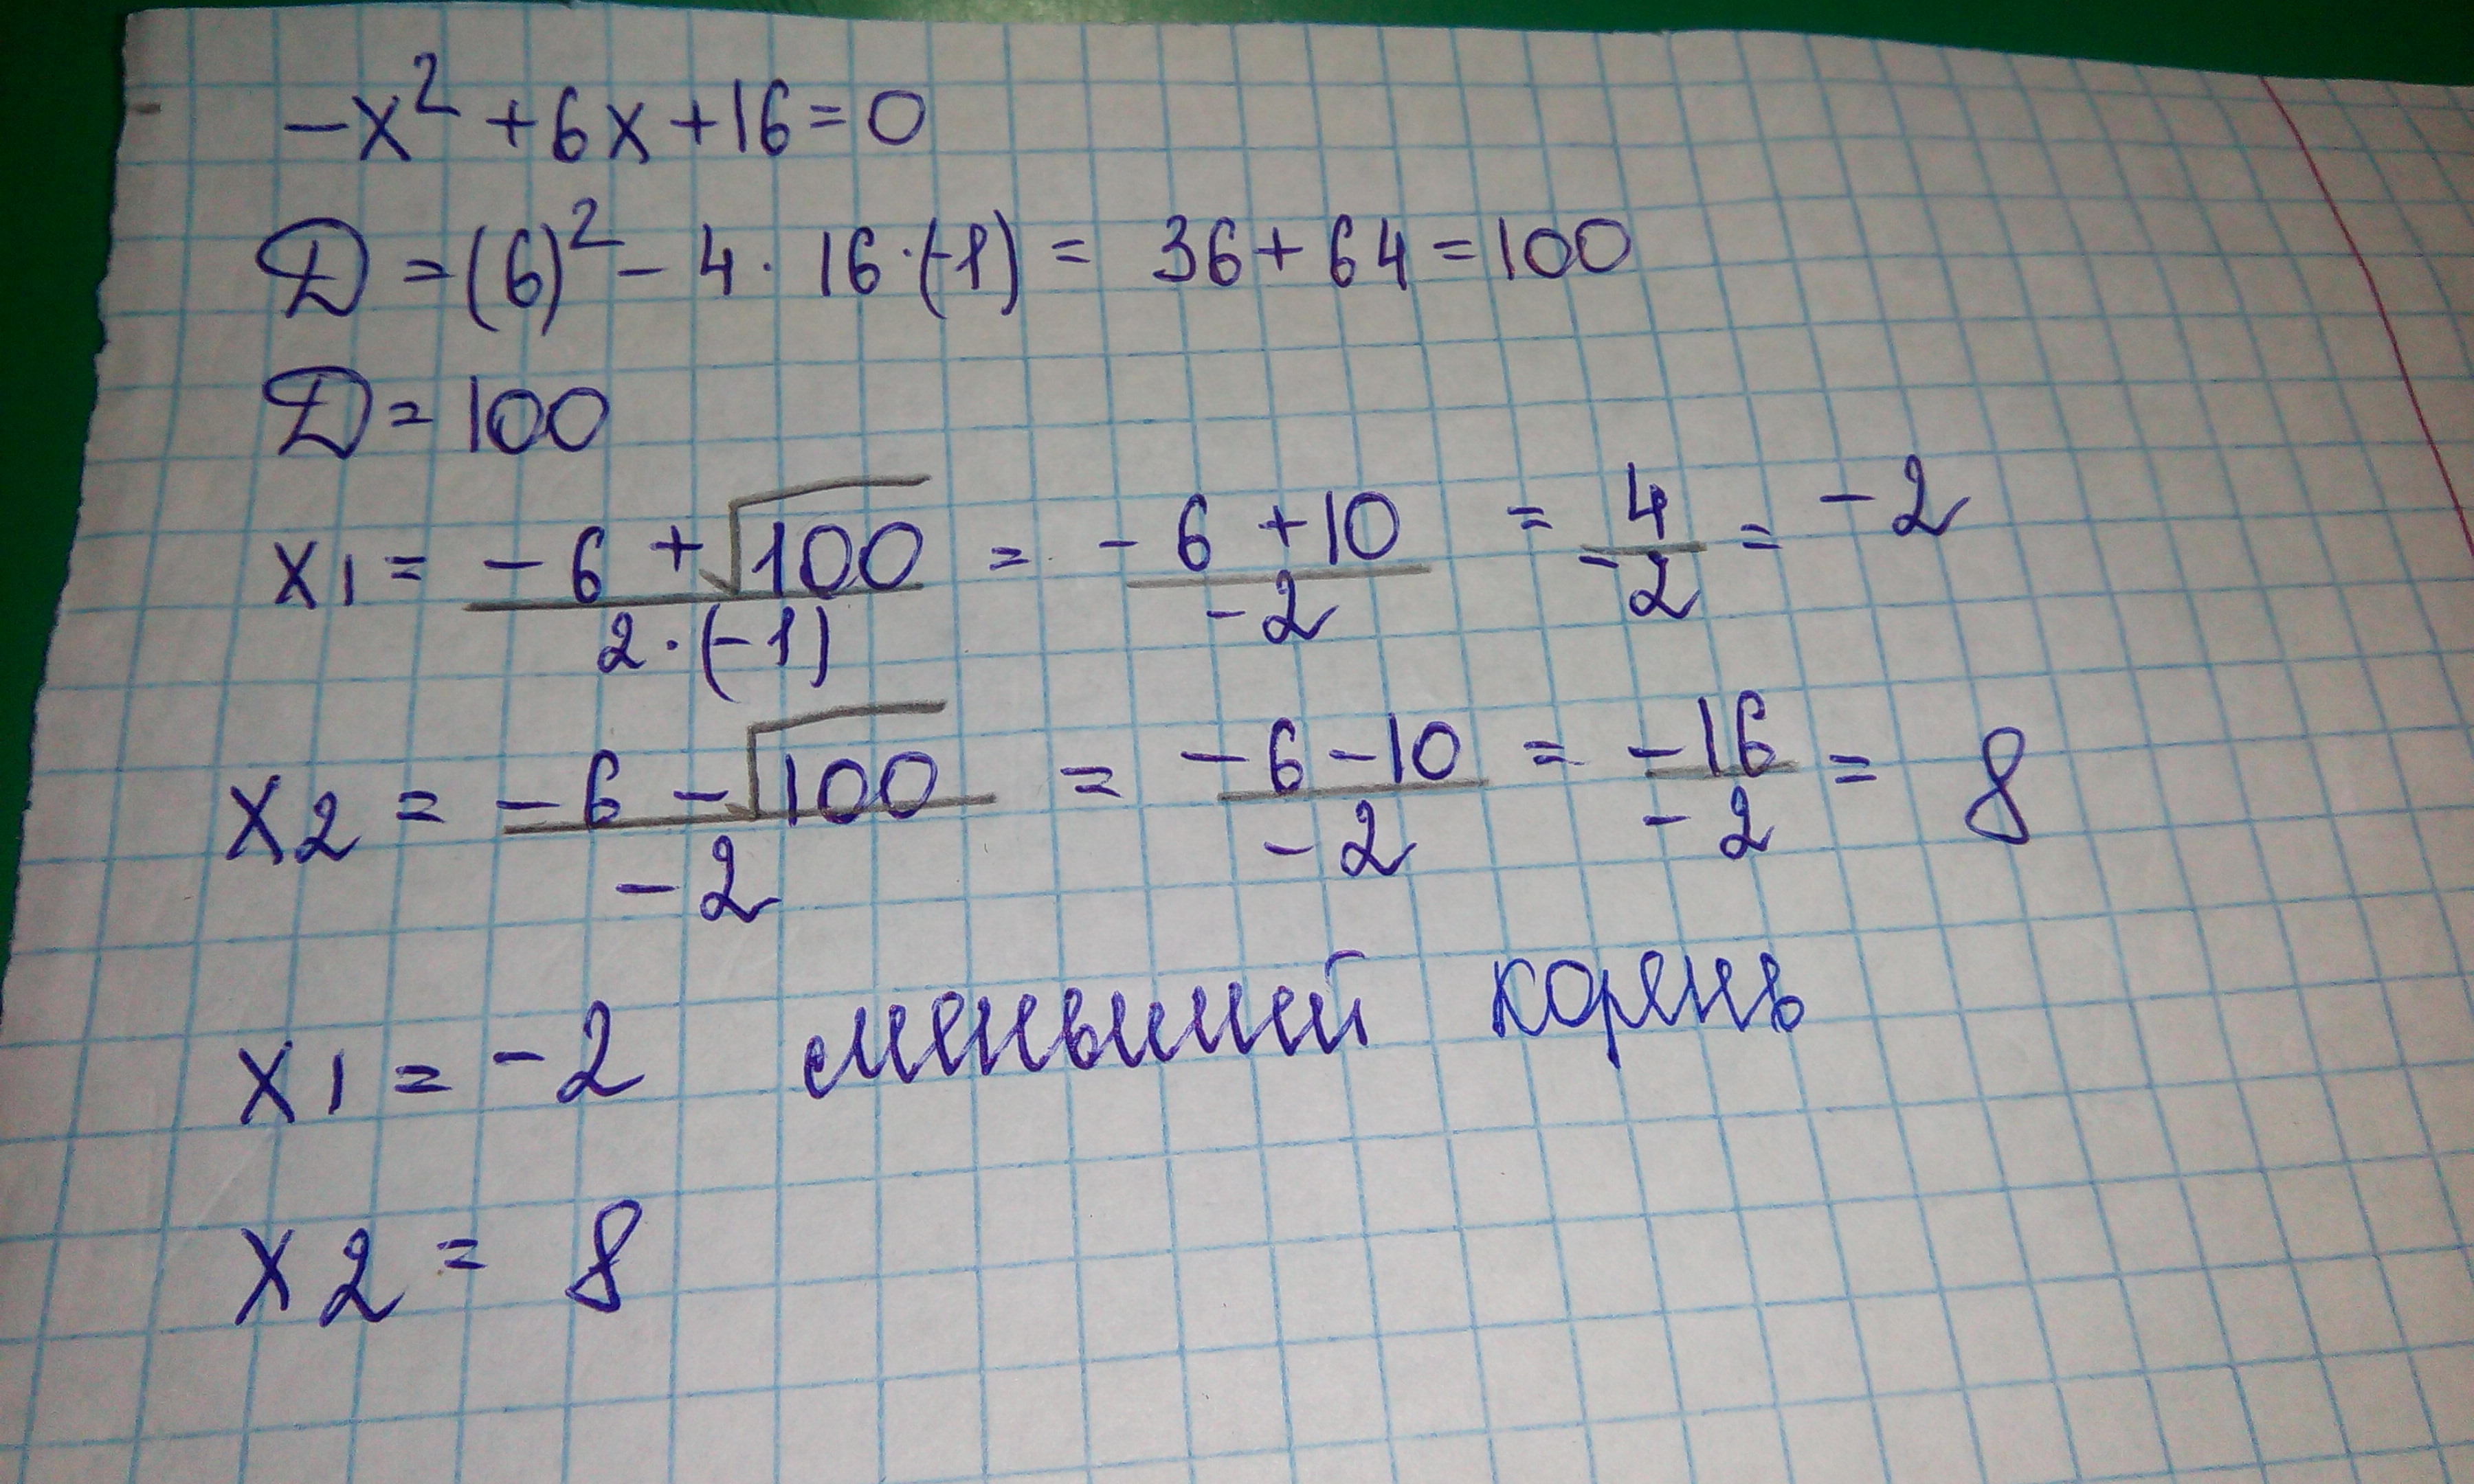 -x² + 6x + 16 = 0
D = (6)² - 4 · 16 · (-1) = 36 + 64 = 100
D = 100
x1 = (-6 + √100) / (2 · (-1)) = (-6 + 10) / (-2) = 4 / (-2) = -2
x2 = (-6 - √100) / (-2) = (-6 - 10) / (-2) = (-16) / (-2) = 8
x1 = -2 меньший корень
x2 = 8